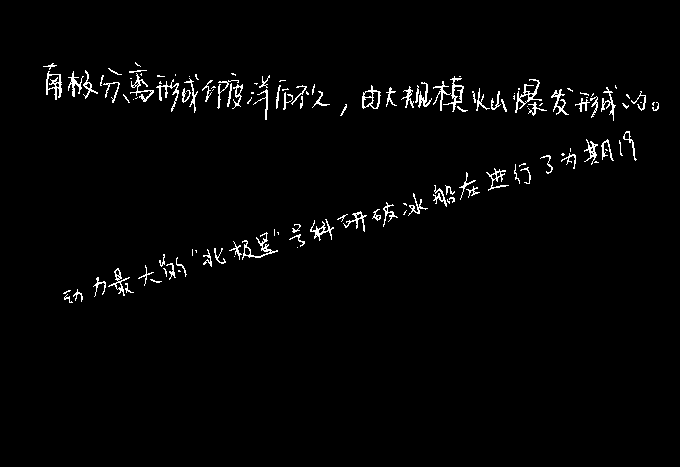 南极分离形成印度洋后不久，由大规模火山爆发形成的。
动力最大的“北极星”号科研破冰船在进行了为期19